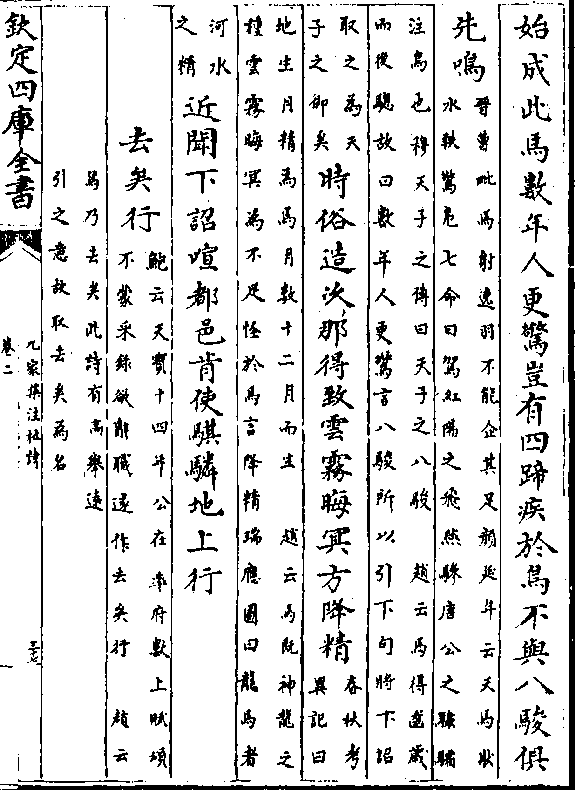 始成此馬數年人更驚豈有四蹄疾於鳥不與八駿俱
先鳴
晉曹毗馬射逸羽不能企其足顔延年云天馬狀
水軼驚鳧七命曰駕紅陽之飛燕驂唐公之驌驦
注鳥也穆天子之傳曰天子之八駿　趙云馬得盈歲
而後驄故曰數年人更驚言八駿所以引下句將下詔
取之為天
子之御矣
時俗造次那得致雲霧晦冥方降精
春秋考
異記曰
地生月精為馬月數十二月而生　趙云馬既神龍之
種雲霧晦冥為不足怪於馬言降精瑞應圖曰龍馬者
河水
之精
近聞下詔喧都邑肯使騏驎地上行
去矣行
鮑云天寶十四年公在率府數上賦頌
不蒙采錄欲辭職遂作去矣行　趙云
鳥乃去矣此詩有高舉遠
引之意故取去矣為名
欽定四庫全書
九家集注杜詩
卷二